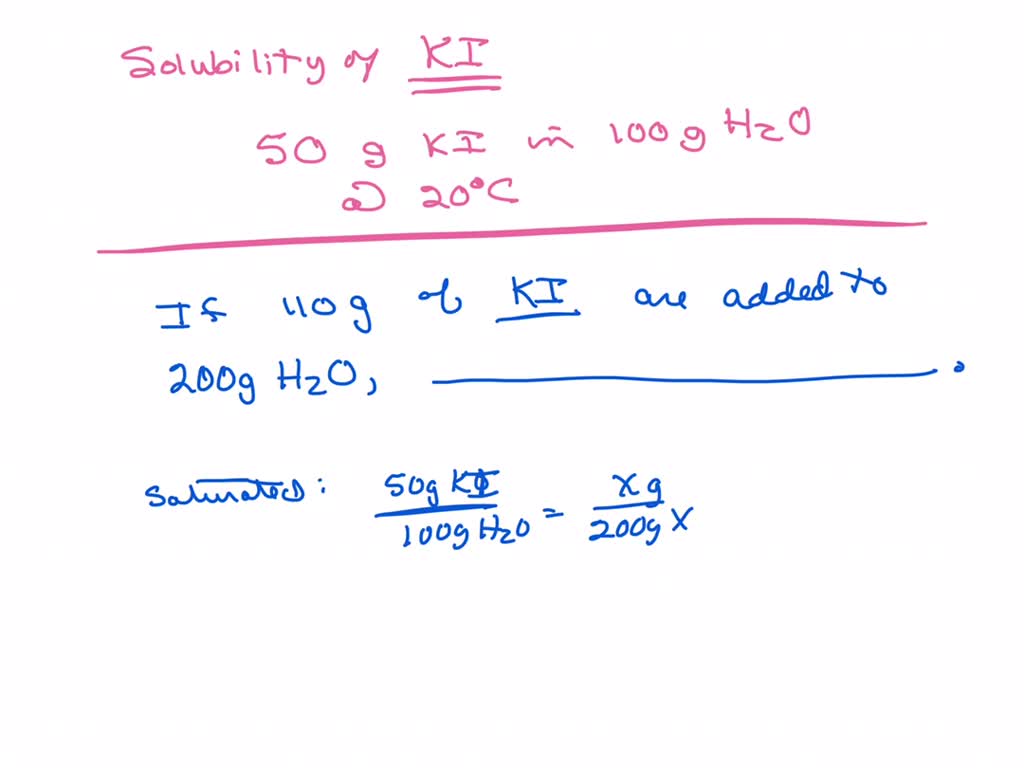 Solubility of KI
50 g KI in 100 g H2O
@ 20°C
If 110 g of KI are added to
200g H2O, ____________.
Saturated: 50g KI / 100g H2O = x g / 200g x